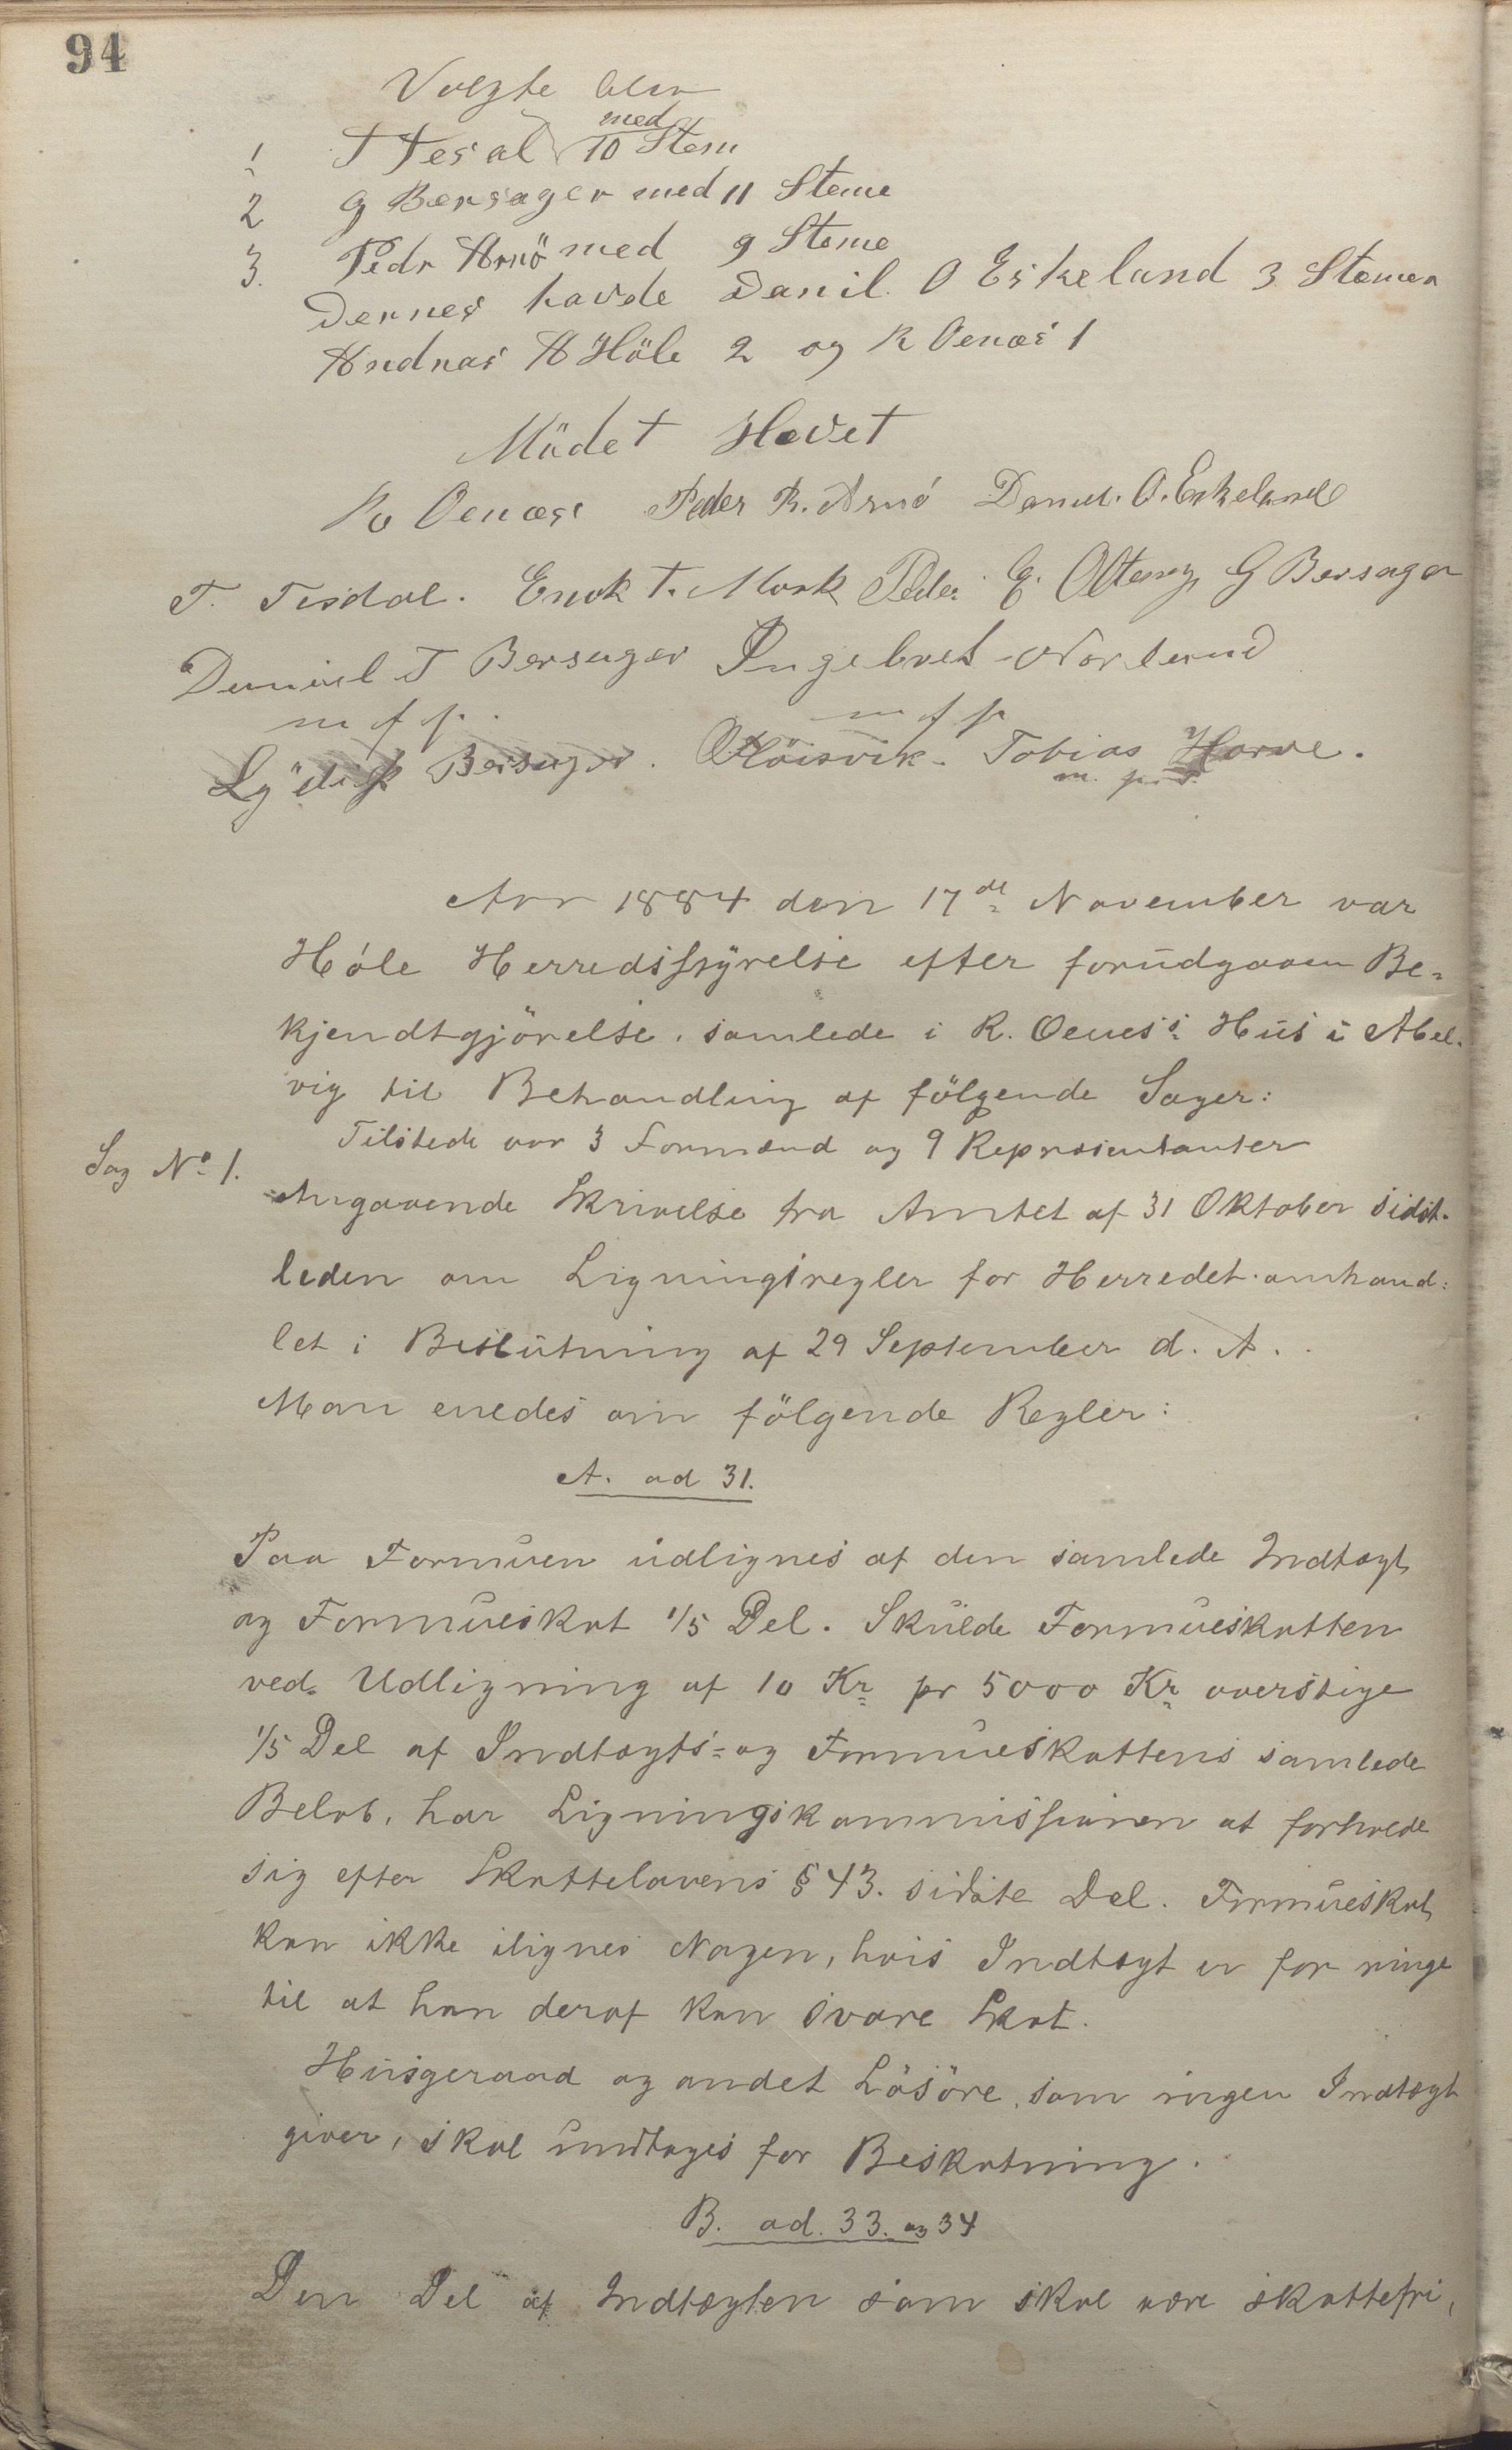 94
Valgte blev
1 T Tesdal med 10 Stem
2 G Bersager med 11 Steme
3. Pedr Arnö med 9 Steme
Dernes havde Danil O Eskeland 3 Stemer
Andnas A Höle 2 og R Oenæs 1
Mödet Hævet
R Oenæs Peder R. Arnö Daniel. O. Eskeland
T. Tesdal. Enok T. Mork Peder E. G Bersager
Daniel T Bersager Ingebret Norland
m f p. m f p
Bersager. Höisvik. Tobias Harve.
m. p.
Aar 1884 den 17de November var
Höle Herredsstyrelse efter forudgaaen Be-
kjendtgjörelse, samlede i R. Oenes's Hus i Abel-
vig til Behandling af fölgende Sager:
Tilstede var 3 Formænd og 9 Repræsentanter
Sag No 1. Angaaende Skrivelse fra Amtet af 31 Oktober sidst-
leden om Ligningsregler for Herredet omhand-
let i Beslutning af 29 September d. A.
Man enedes om fölgende Regler:
A. ad 31.
Paa Formuen udlignes af den samlede Indtægt
og Formueskat 1/5 Del. Skulde Formueskatten
ved Udligning af 10 Kr pr 5000 Kr overstige
1/5 Del af Indtægts- og Formueskattens samlede
Belöb, har Ligningskommissionen at forholde
sig efter Skattelovens § 43. sidste Del. Formueskat
kan ikke ilignes Nogen, hvis Indtægt er for ringe
til at han deraf kan svare Skat.
Husgeraad og andet Lösöre, som ingen Indtægt
giver, skal undtages for Beskatning.
B. ad. 33. og 34
Den Del af Indtægten som skal være skattefri,